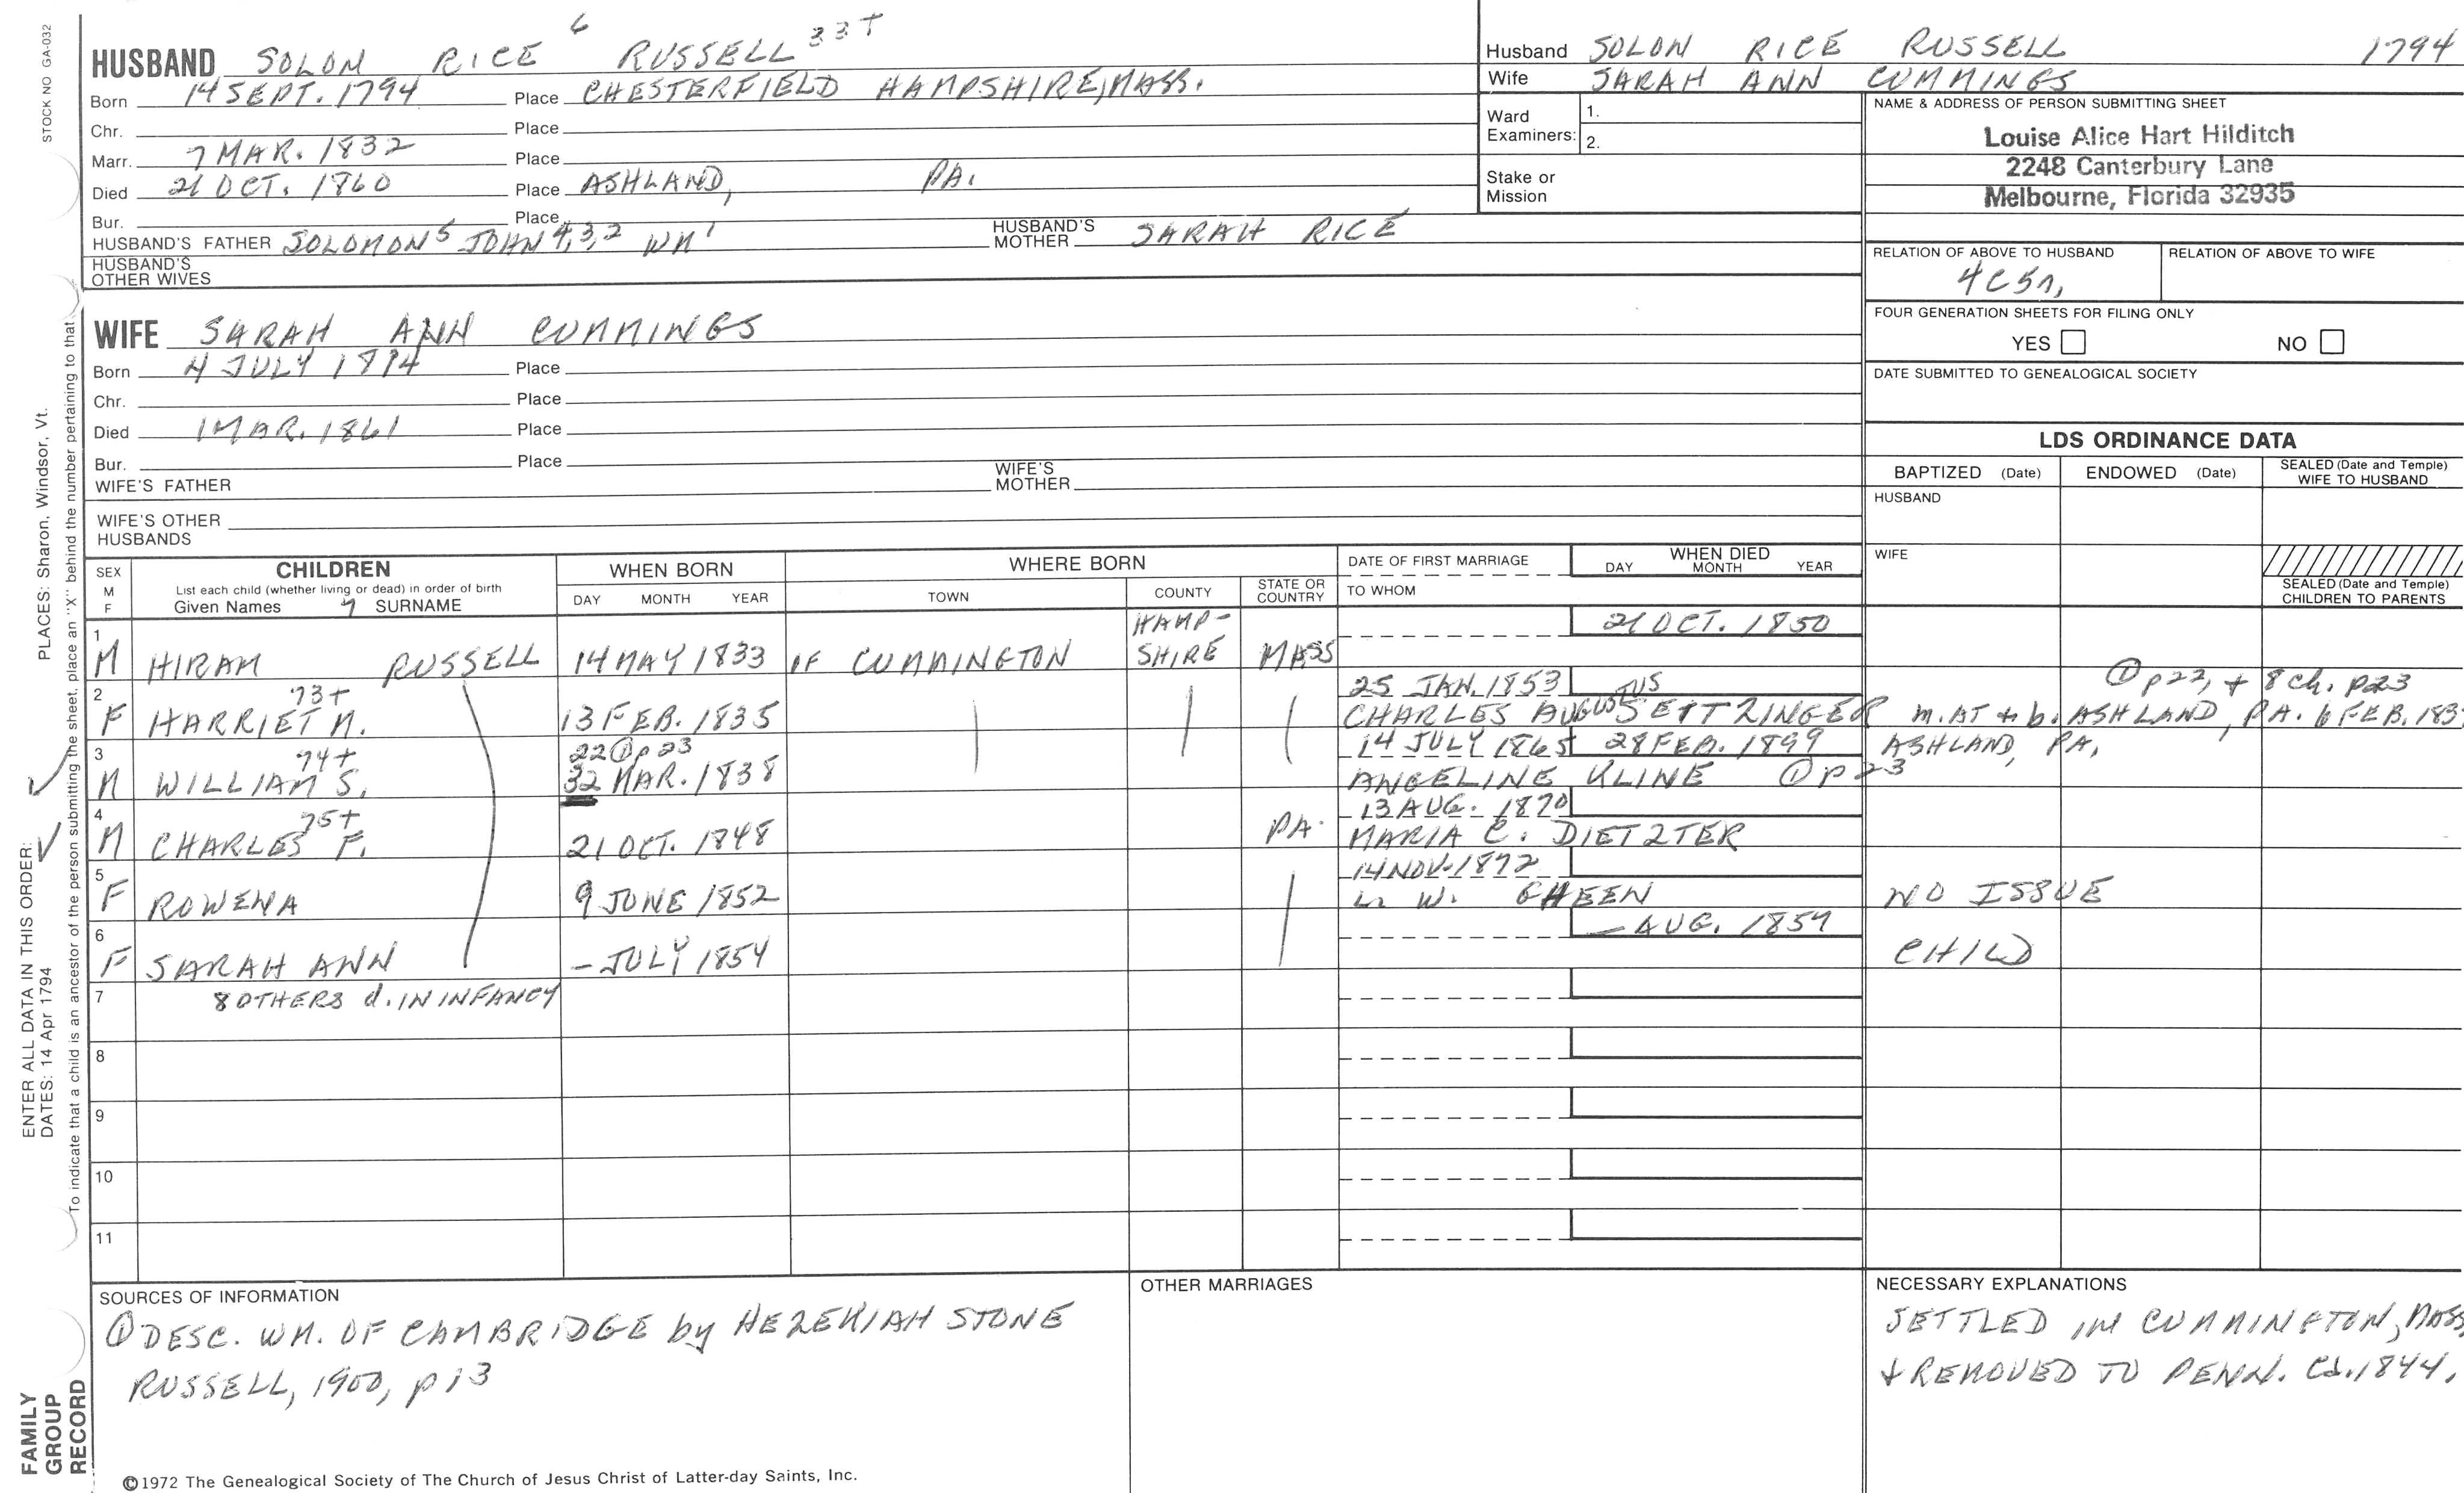 STOCK NO GA-032
HUSBAND SOLON RICE 6 RUSSELL 33+
Born 14 SEPT. 1794 Place CHESTERFIELD HAMPSHIRE, MASS.
Chr. Place
Marr. 7 MAR. 1832 Place
Died 21 OCT. 1860 Place ASHLAND, PA.
Bur. Place
HUSBAND'S FATHER SOLOMON5 JOHN4,3,2 WM1 HUSBAND'S MOTHER SARAH RICE
HUSBAND'S OTHER WIVES
WIFE SARAH ANN CUMMINGS
Born 4 JULY 1814 Place
Chr. Place
Died 1 MAR. 1861 Place
Bur. Place
WIFE'S FATHER WIFE'S MOTHER
WIFE'S OTHER HUSBANDS
Husband SOLON RICE RUSSELL 1794
Wife SARAH ANN CUMMINGS
Ward Examiners: 1. 2.
Stake or Mission
NAME & ADDRESS OF PERSON SUBMITTING SHEET
Louise Alice Hart Hilditch
2248 Canterbury Lane
Melbourne, Florida 32935
RELATION OF ABOVE TO HUSBAND RELATION OF ABOVE TO WIFE
4C5r,
FOUR GENERATION SHEETS FOR FILING ONLY
YES NO
DATE SUBMITTED TO GENEALOGICAL SOCIETY
LDS ORDINANCE DATA
BAPTIZED (Date) ENDOWED (Date) SEALED (Date and Temple) WIFE TO HUSBAND
HUSBAND
WIFE
SEALED (Date and Temple) CHILDREN TO PARENTS
SEX M F CHILDREN WHEN BORN WHERE BORN DATE OF FIRST MARRIAGE WHEN DIED
List each child (whether living or dead) in order of birth
Given Names 7 SURNAME DAY MONTH YEAR TOWN COUNTY STATE OR COUNTRY TO WHOM DAY MONTH YEAR
1 M HIRAM RUSSELL 14 MAY 1833 OF CUMMINGTON HAMP-SHIRE MASS 21 OCT. 1850
2 F HARRIET M. 73+ 13 FEB. 1835 25 JAN. 1853
CHARLES AUGUSTUS SEITZINGER m. AT & b. ASHLAND, PA. 6 FEB. 183
① p22, + 8 ch. p23
3 M WILLIAM S. 74+ 22 ① p 23
32 MAR. 1838 14 JULY 1865 28 FEB. 1899 ASHLAND, PA.
ANGELINE KLINE ① p 23
4 M CHARLES F. 75+ 21 OCT. 1848 PA. 13 AUG. 1870
MARIA C. DIETZTER
5 F ROWENA 9 JUNE 1852 14 NOV. 1872
L. W. GHEEN NO ISSUE
6 F SARAH ANN – JULY 1854 – AUG. 1854 CHILD
7 8 OTHERS d. IN INFANCY
8
9
10
11
SOURCES OF INFORMATION
① DESC. WM. OF CAMBRIDGE by HEZEKIAH STONE
RUSSELL, 1900, p 13
OTHER MARRIAGES
NECESSARY EXPLANATIONS
SETTLED IN CUMMINGTON, MASS
& REMOVED TO PENN. ca. 1844.
©1972 The Genealogical Society of The Church of Jesus Christ of Latter-day Saints, Inc.
FAMILY GROUP RECORD
ENTER ALL DATA IN THIS ORDER:
DATES: 14 Apr 1794 PLACES: Sharon, Windsor, Vt.
To indicate that a child is an ancestor of the person submitting the sheet, place an "X" behind the number pertaining to that